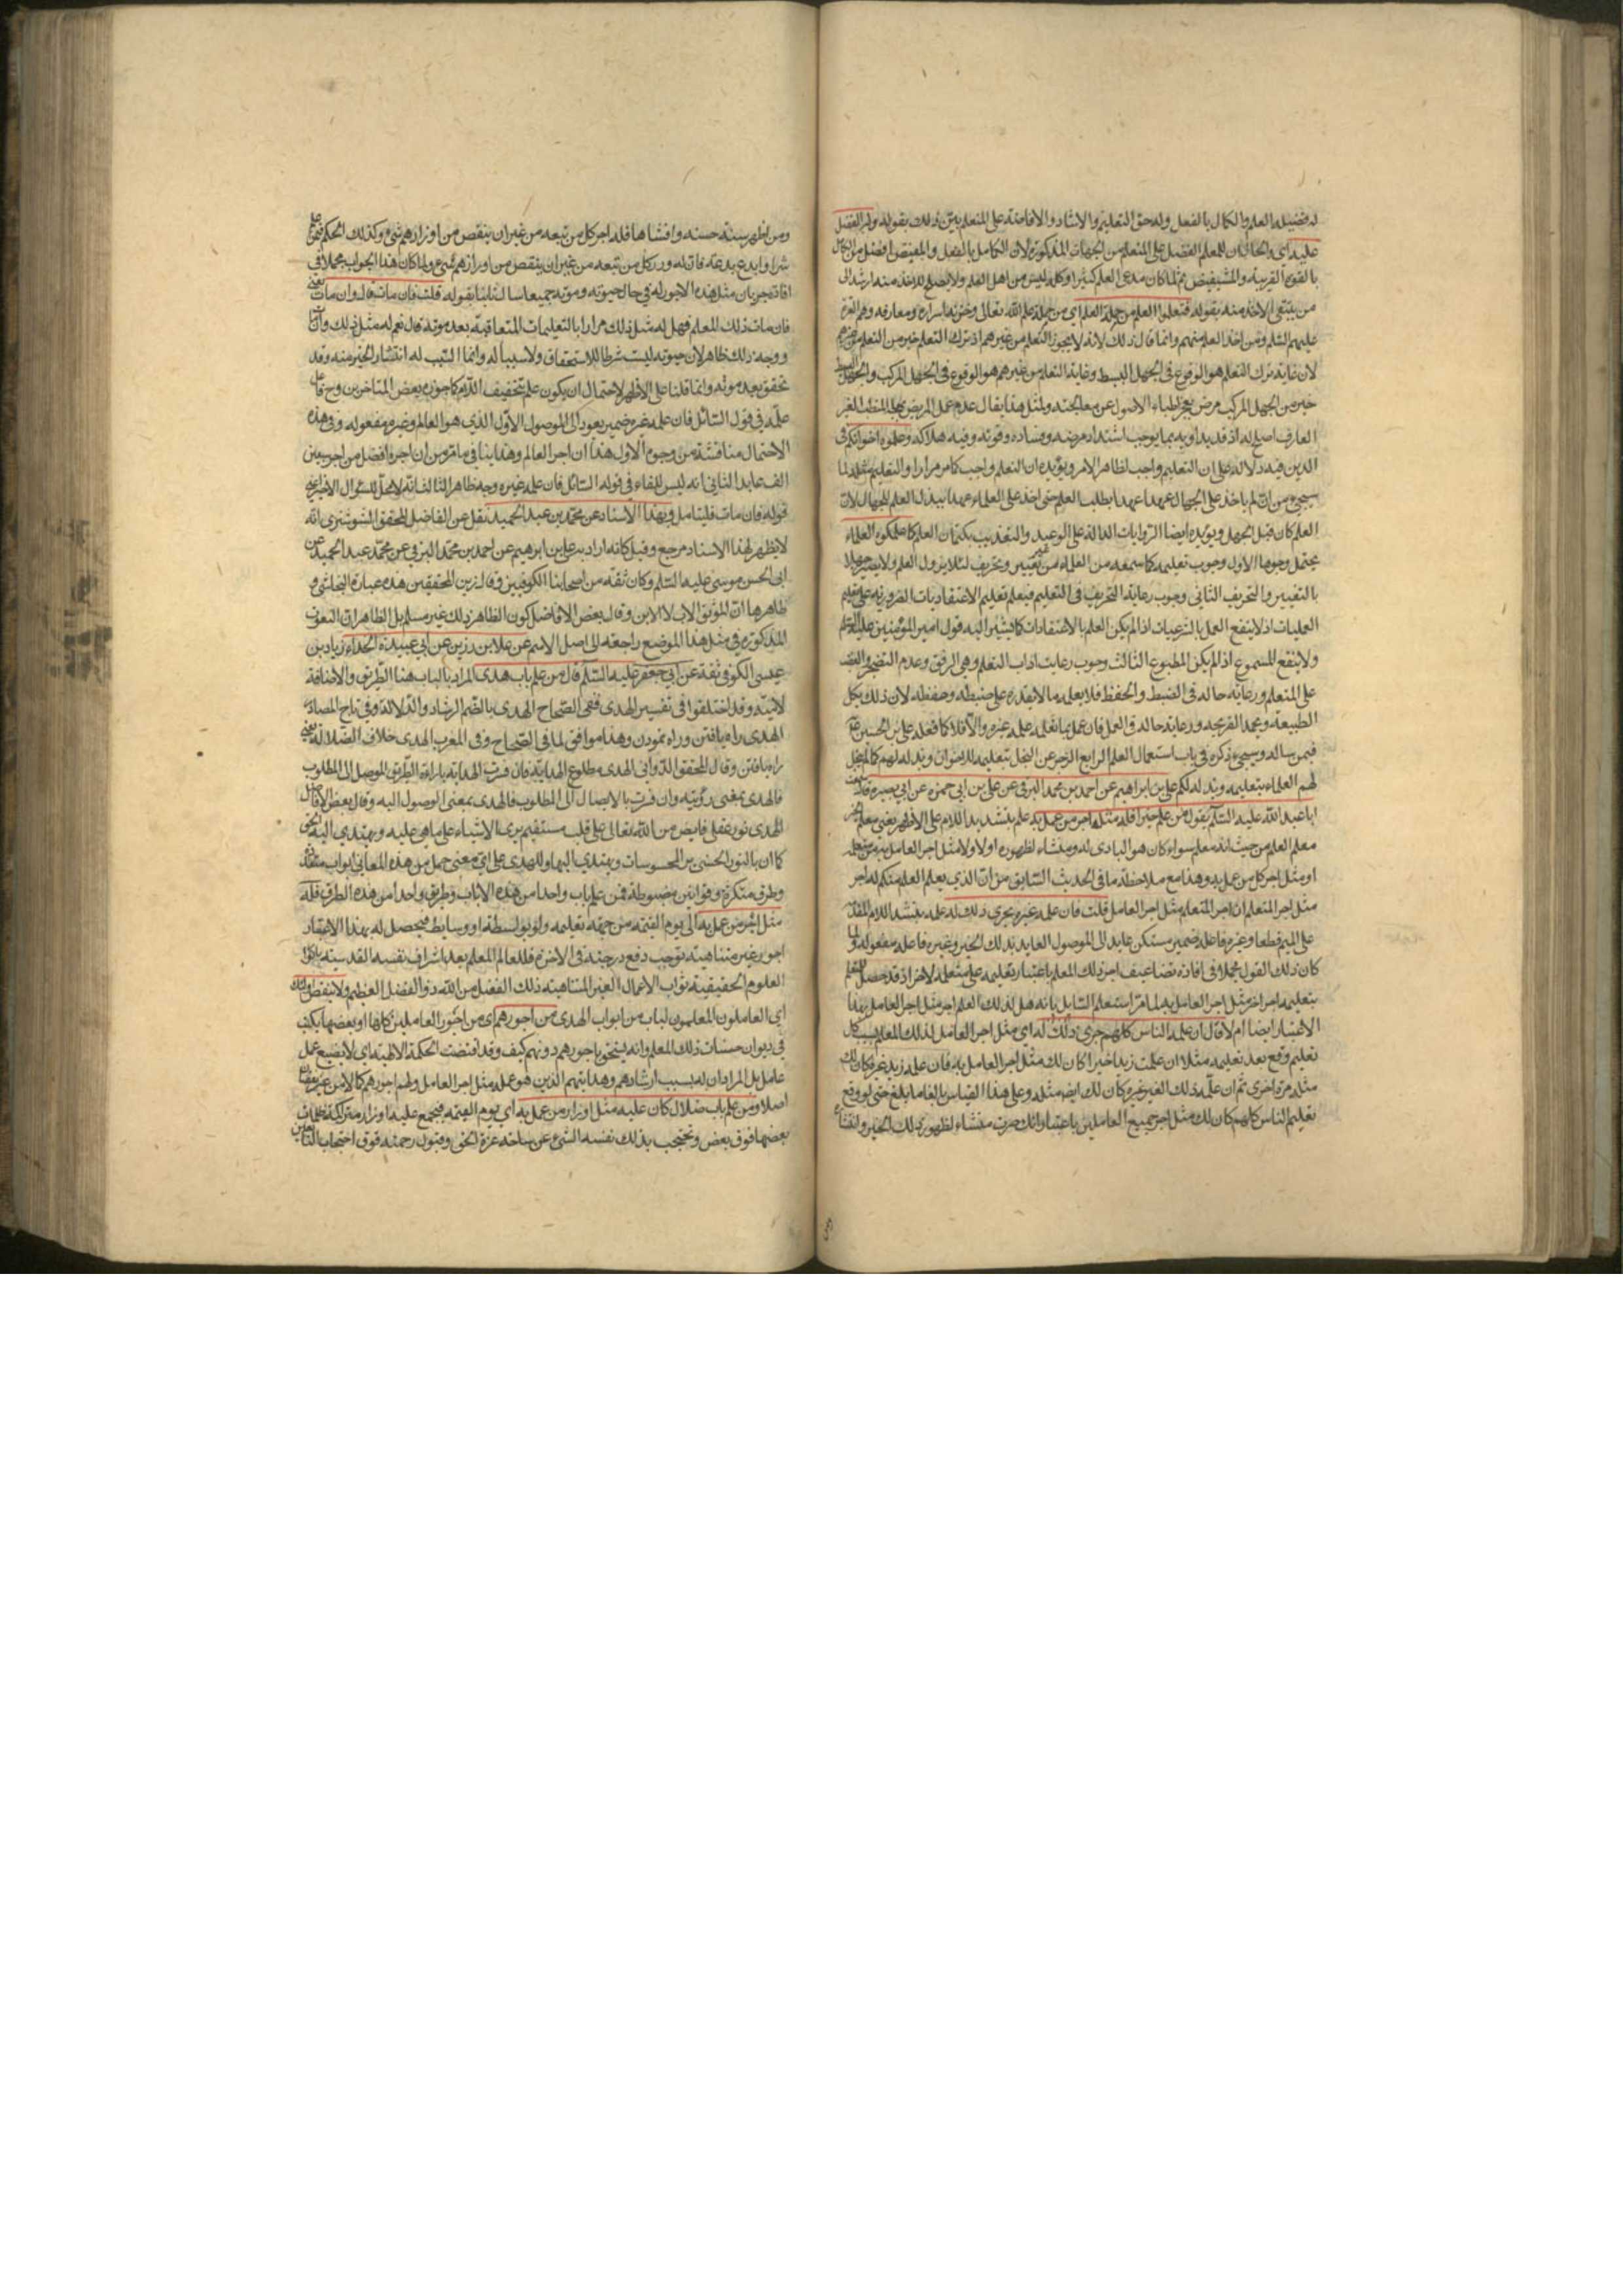 له فضيلة العلم والكمال بالفعل وله حق التعليم والارشاد والافاضة على المتعلم بين ذلك بقوله وله الفضل
عليه اى والحال ان للمعلم الفضل على المتعلم من الجهات المذكورة لان الكامل بالفعل والمفيض افضل من الكامل
بالقوة القريبة والمستفيض ثم لما كان مدعى العلم كثيرا وكله ليس من اهل العلم ولا يصلح للاخذ منه ارشد الى
من ينبغى الاخذ منه بقوله فتعلموا العلم من حملة العلم اى من حملة علم الله تعالى وخزنة اسراره ومعارفه وهم العترة
عليهم السلم ومن اخذ العلم منهم وانما قال ذلك لانه لا يجوز التعلم من غيرهم اذ ترك التعلم خير من التعلم من غيرهم
لان غاية ترك التعلم هو الوقوع فى الجهل البسيط وغاية التعلم من غيرهم هو الوقوع فى الجهل المركب والجهل البسيط
خير من الجهل المركب مرض عجز اطباء الاصول عن معالجته ولمثل هذا يقال عدم عمل المريض الغير
العارف اصلح له اذ قد يداويه بما يوجب اشتداد مرضه وفساده وقوته وفيه هلاكه وعلموه اخوانكم فى
الدين فيه دلالة على ان التعليم واجب لظاهر الامر ويؤيده ان التعلم واجب كما مر مرارا والتعليم مثله لما
سيجئ من ان الله لم ياخذ على الجهال عهدا بطلب العلم حتى اخذ على العلماء عهدا ببذل العلم للجهال لان
العلم كان قبل الجهل ويؤيده ايضا الروايات الدالة على الوعيد والتعذيب بكتمان العلم كما علمكوه العلماء
يحتمل وجوها الاول وجوب تعليمه كما سمعه من العلماء من غير تغيير وتحريف لئلا يزول العلم ولا يصير جهلا
بالتغيير والتحريف الثانى وجوب رعاية التدريج فى التعليم فيعلم تعليم الاعتقاديات الضرورية على تعليم
العمليات اذ لا ينفع العمل بالشرعيات اذا لم يكن العلم بالاعتقادات كما يشير اليه قول امير المؤمنين عليه السلم
ولا ينفع المسموع اذا لم يكن المطبوع الثالث وجوب رعايت اداب التعلم وهى الرفق وعدم التضجر
على المتعلم ورعاية حاله فى الضبط والحفظ فلا يعلمه ما لا يقدر على ضبطه وحفظه لان ذلك يكل
الطبيعة ويجمد القريحة ورعاية حاله فى العمل فان عمل بما تعلمه علمه غيره والا فلا كما فعله على بن الحسين ع
فيمن ساله وسيجئ ذكره فى باب استعمال العلم الرابع الزجر عن البخل بتعليمه للاخوان وبذله لهم كما لم يبخل
لهم العلماء بتعليمه وبذله لكم على بن ابراهيم عن احمد بن محمد البرقى عن على بن ابى حمزة عن ابى بصير قال سمعت
ابا عبد الله عليه السلم يقول من علم خيرا فله مثل اجر من عمل به علم بتشديد اللام على الاظهر يعنى معلم الخير
معلم العلم من حيث انه معلم سواء كان هو البادى له ومنشاء لظهوره اولا ولا مثل اجر العامل به من متعلمه
او مثل اجر كل من عمل به وهذا مع ملاحظة ما فى الحديث السابق من ان الذى يعلم العلم منكم له اجر
مثل اجر المتعلم ان اجر المتعلم مثل اجر العامل قلت فان علمه غيره يجرى ذلك له علمه بتشديد اللام المقدمة
على الميم قطعا وغيره فاعله ضمير مستكن عايد الى الموصول العايد بذلك الخير وغيره فاعله مفعوله ولما
كان ذلك القول مجملا فى افادة تضاعيف اجر ذلك المعلم باعتبار تعليم متعلمه لاخر اذ قد حصل للمتعلم
بتعليمه اجر اخر مثل اجر العامل به لما مر استعلم السايل بانه هل لذلك العلم اجر مثل اجر العامل بهذا
الاعتبار ايضا ام لا قال ان علمه الناس كلهم جرى ذلك له اى مثل اجر العامل لذلك المعلم بسبب كل
تعليم وقع بعد تعليمه مثلا ان علمت زيدا خيرا كان لك مثل اجر العامل به فان علم زيد غيره كان لك
مثله مرة اخرى ثم ان علم ذلك الغير غيره كان لك ايضا مثله وعلى هذا القياس بالغا ما بلغ حتى لو وقع
تعليم الناس كلهم كان لك مثل اجر جميع العاملين باعتبار انك صرت منشاء لظهور ذلك الخير وافشائه
ومن اظهر سنة حسنة وافشاها فله اجر كل من تبعه من غير ان ينقص من اوزارهم شئ وكذلك الحكم فيمن علم
شرا وابدع بدعة فان له وزر كل من تبعه من غير ان ينقص من اوزارهم شئ ولما كان هذا الجواب مجملا فى
افادة جريان مثل هذه الاجور له فى حال حيوته وموته جميعا سال ثانيا بقوله قلت فان مات قال وان مات يعنى
فان مات ذلك المعلم فهل له مثل ذلك مرارا بالتعليمات المتعاقبة بعد موته قال نعم له مثل ذلك وان مات
ووجه ذلك ظاهر لان حيوته ليست شرطا للاستحقاق ولا سببا له وانما السبب له انتشار الخير منه وقد
تحقق بعد موته وانما قلنا على الاظهر لاحتمال ان يكون علم بتخفيف اللام كما جوزه بعض المتاخرين وح فاعل
علمه فى قول السائل فان علمه غيره ضمير يعود الى الموصول الاول الذى هو العالم وغيره مفعوله وفى هذه
الاحتمال مناقشة من وجوه الاول هذا ان اجر العالم وهذا ينافى ما مر من ان اجره افضل من اجر سبعين
الف عابد الثانى انه ليس للفاء فى قوله السائل فان علمه غيره وجه ظاهر الثالث انه لا محل للسؤال الاخير اعنى
قوله فان مات فليتامل وبهذا الاسناد عن محمد بن عبد الحميد نقل عن الفاضل المحقق الشوشترى انه
لا يظهر لهذا الاسناد مرجع وقيل كانه اراد به على بن ابرهيم عن احمد بن محمد البرقى عن محمد عبد الحميد عن
ابى الحسن موسى عليه السلم وكان ثقة من اصحابنا الكوفيين وقال زين المحققين هذه عبارة النجاشى و
ظاهرها ان الموثق الاب لا الابن وقال بعض الافاضل كون الظاهر ذلك غير مسلم بل الظاهر ان النعوت
المذكورة فى مثل هذا الموضع راجعة الى اصل الاسم عن علا بن رزين عن ابى عبيدة الحذاء زياد بن
عيسى الكوفى ثقة عن ابى جعفر عليه السلم قال من علم باب هدى المراد بالباب هنا الطريق والاضافة
لامية وقد اختلفوا فى تفسير الهدى ففى الصحاح الهدى بالضم الرشاد والدلالة وفى تاج المصادر
الهدى راه يافتن وراه نمودن وهذا موافق لما فى الصحاح وفى المغرب الهدى خلاف الضلالة يعنى
راه يافتن وقال المحقق الدوانى الهدى مطاوع الهداية فان فسرت الهداية باراءة الطريق الموصل الى المطلوب
فالهدى بمعنى رؤيته وان فسرت بالايصال الى المطلوب فالهدى بمعنى الوصول اليه وقال بعض الافاضل
الهدى نور عقلى فايض من الله تعالى على قلب مستقيم يرى الاشياء على ما هى عليه ويهتدى اليه الحق
كما ان بالنور الحسى يرى المحسوسات ويهتدى اليها وللهدى على اى معنى حمل من هذه المعانى ابواب متعددة
وطرق متكثرة وقوانين مضبوطة فمن علم باب واحدا من هذه الابواب وطريق واحدا من هذه الطرق فله
مثل اجر من عمل به الى يوم القيمة من جهة تعليمه ولو بواسطة او وسايط فيحصل له بهذا الاعتبار
اجور غير متناهية توجب رفع درجته فى الاخرة فللعالم المعلم بعد اشراف نفسه القدسية بانوار
العلوم الحقيقية ثواب الاعمال الغير المتناهية ذلك الفضل من الله ذو الفضل العظيم ولا ينقص اولئك
اى العاملون المعلمون لباب من ابواب الهدى من اجورهم اى من اجور العاملين كلها او بعضها يكتب
فى ديوان حسنات ذلك المعلم وانه يستحق باجورهم دونهم كيف وقد اقتضت الحكمة الالهية اى لا يضيع عمل
عامل بل المراد ان له بسبب ارشادهم وهدايتهم الذين هو علمه مثل اجر العامل ولهم اجورهم كاملا من غير نقصان
اصلا ومن علم باب ضلال كان عليه مثل اوزار من عمل به اى يوم القيمة فيجتمع عليه اوزار متراكمة ظلمات
بعضها فوق بعض وتحتجب بذلك نفسه الشئ عن ساحة عزة الحق وقبول رحمته فوق احتجاب التابعين